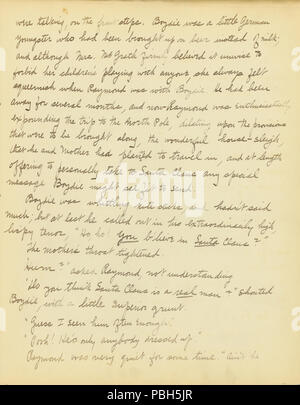 were talking, on the front steps. Boydie was a little German
youngster who had been brought up on beer instead of milk;
and although Mrs. McGrath firmly believed it unwise to
forbid her children's playing with anyone she always felt
squeamish when Raymond was with Boydie. He had been
away for several months, and now Raymond was enthusiastically
expounding the trip to the North Pole, dilating upon the provisions
that were to be brought along, the wonderful house-sleigh
that he and Mother had planned to travel in, and at length
offering to personally take to Santa Claus any special
message Boydie might care to send.
Boydie was
hadn't said
much; but at last he called out in his extraordinarily high
lispy tenor. "Ho ho! You b'lieve in Santa Claus?"
The mother's throat tightened.
asked Raymond, not understanding.
"Do you think Santa Claus is a real man?" shouted
Boydie with a little superior grunt.
"Guess I seen him often enough."
"Pooh! He's only anybody dressed up."
Raymond was very quiet for some time. "Ain't he
alamy
Image ID: PBH5JR
www.alamy.com